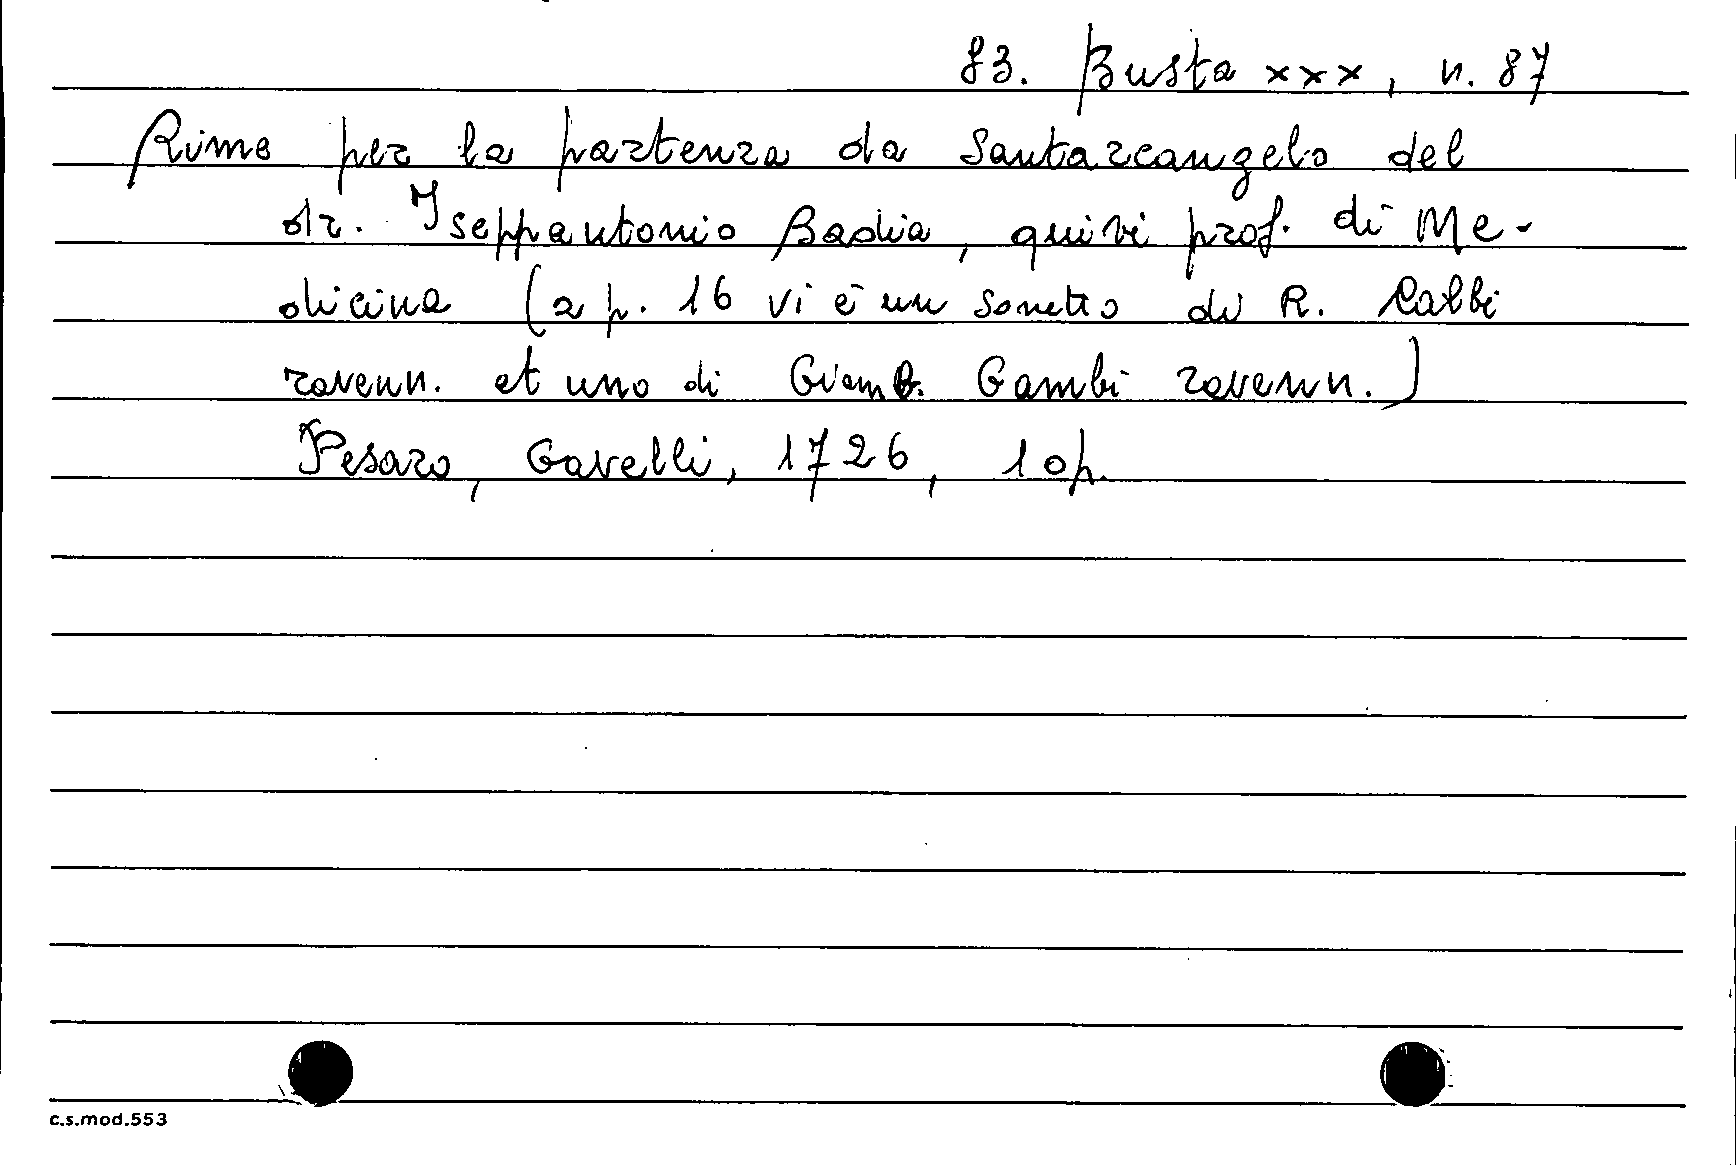 83. Busta XXX, n. 87
Rime per la partenza da Santarcangelo del
dr. Iseppantonio Badia, quivi prof. di Me-
dicina (a p. 16 vi è un sonetto di R. Calbi
ravenn. et uno di Giamb. Gambi ravenn.)
Pesaro, Gavelli, 1726, 10p.
c.s.mod.553